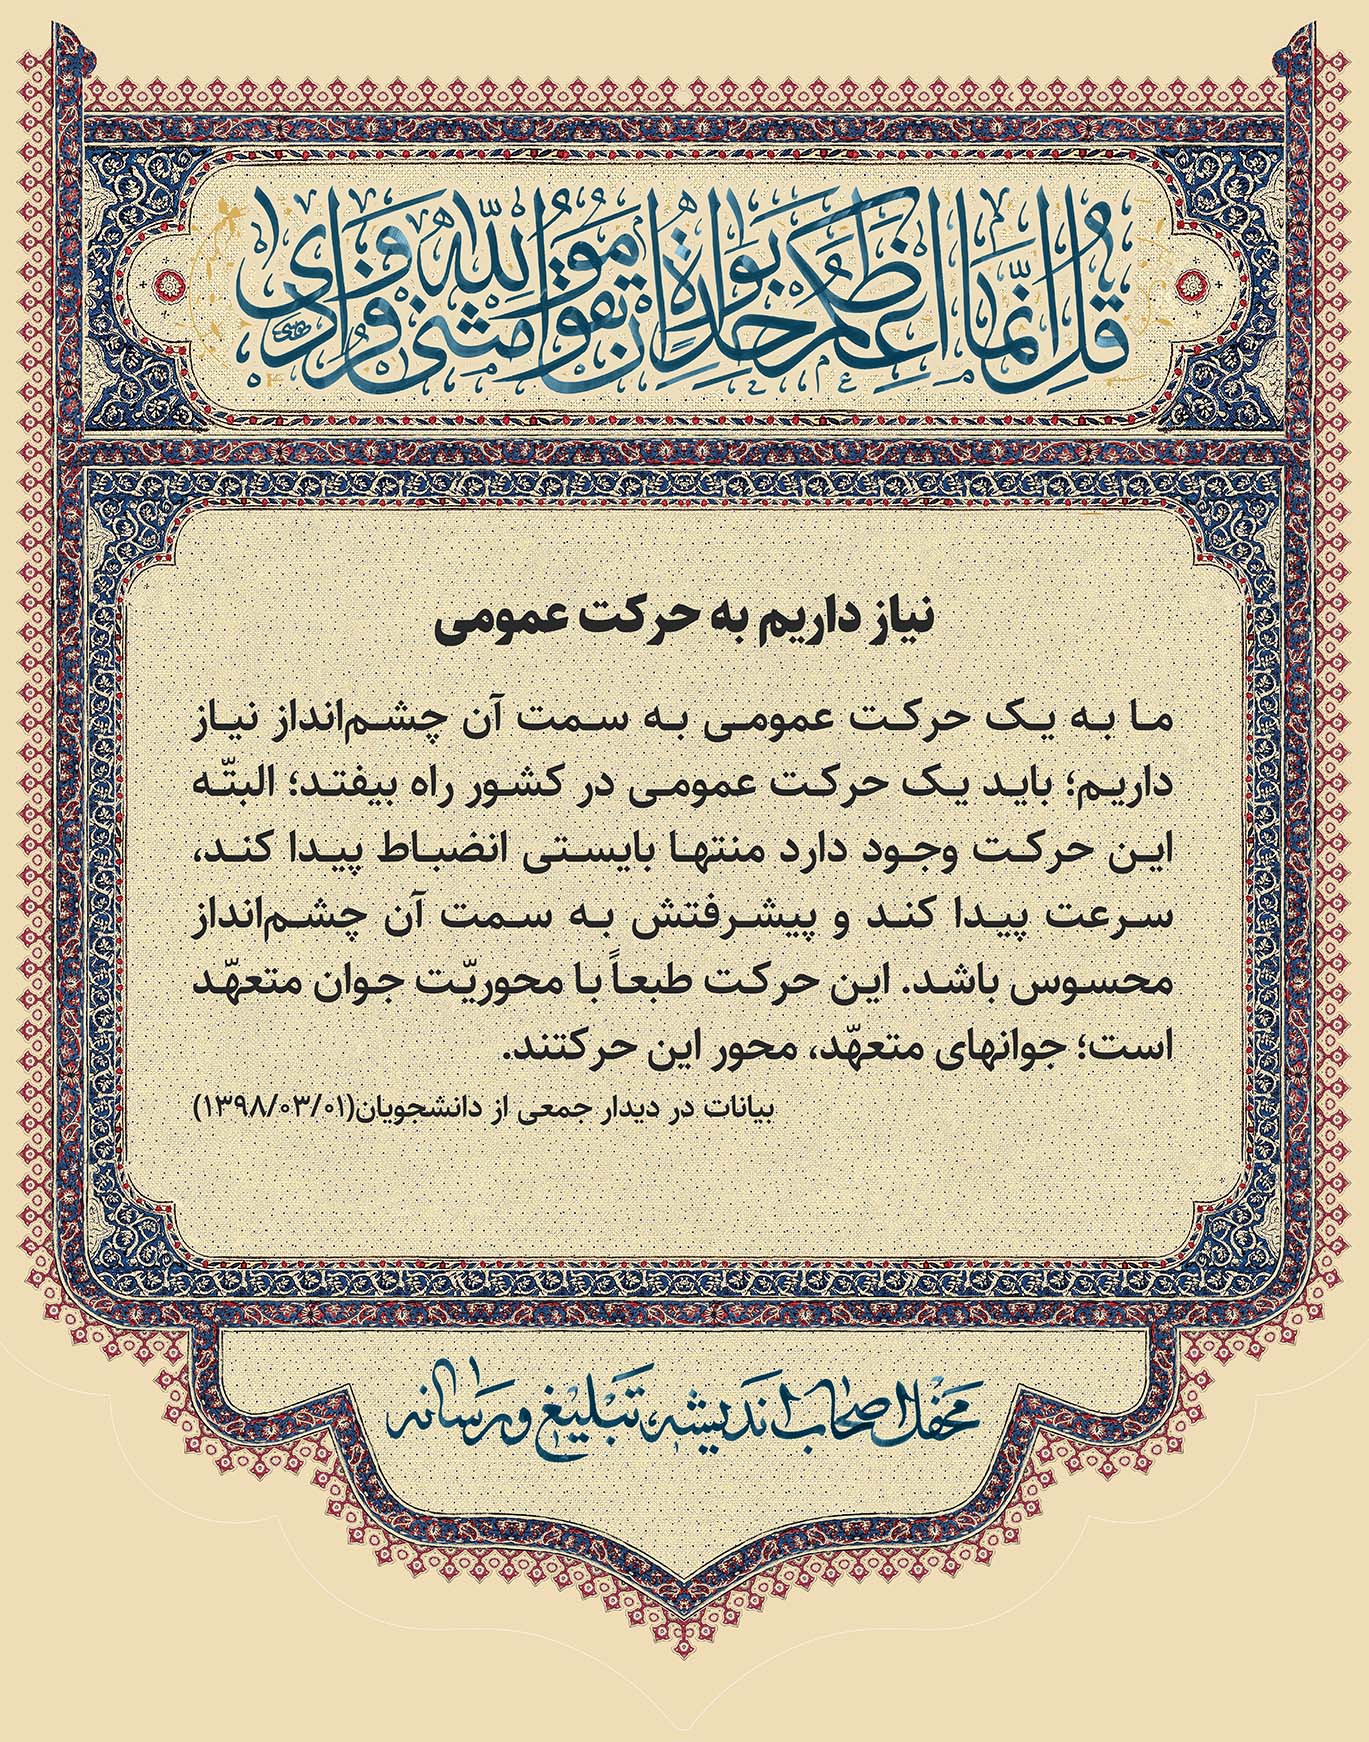 قُل اِنَّما اَعِظُکُم بِواحِدَةٍ اَن تَقوموا لِلّهِ مَثنیٰ وَ فُرادیٰ
نیاز داریم به حرکت عمومی
ما به یک حرکت عمومی به سمت آن چشم‌انداز نیاز
داریم؛ باید یک حرکت عمومی در کشور راه بیفتد؛ البتّه
این حرکت وجود دارد منتها بایستی انضباط پیدا کند،
سرعت پیدا کند و پیشرفتش به سمت آن چشم‌انداز
محسوس باشد. این حرکت طبعاً با محوریّت جوان متعهّد
است؛ جوانهای متعهّد، محور این حرکتند.
بیانات در دیدار جمعی از دانشجویان(۱۳۹۸/۰۳/۰۱)
محفل اصحاب اندیشه، تبلیغ و رسانه